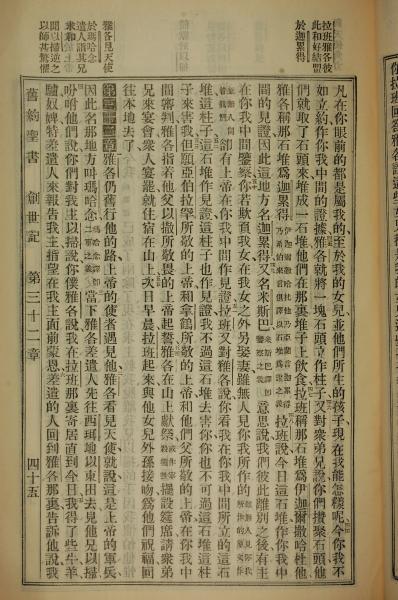 拉班雅各彼
此和好結盟
於迦累得
雅各見天使
於瑪哈念
遣人詣其兄
以掃求和
聞以掃迎之
以師甚驚懼
凡在你眼前的都是屬我的至於我的女兒並他們所生的孩子現在我能怎樣呢今你我不
如立約作你我中間的證據雅各就將一塊石頭立作柱子又對衆弟兄說你們攢聚石頭他
們就取了石頭來堆成一石堆他們在那裏堆子上飲食拉班稱那石堆爲伊迦爾撒哈杜他
雅各稱那石堆爲迦累得 拉班說今日這石堆作你我中
間的見證因此這地方名迦累得又名米斯巴 意思說我們彼此離別之後有主
在你我中間鑒察你若欺負我女在我女之外另娶妻雖無人見你我所
卻有上帝在你我中間作見證拉班又對雅各說你看我在你我中間所立的這
堆這柱子這石堆作見證這柱子也作見證我不過這石堆去害你你也不可過這石堆這柱
子來害我但願亞伯拉罕所敬的上帝和拿鶴所敬的上帝和他們父所敬的上帝在你我中
間審判雅各指着他父以撒所敬畏的上帝起誓雅各在山上獻祭 擺設筵席請衆弟
兄來宴會衆人宴罷就住宿在山上次日早晨拉班起來與他女兒外孫接吻爲他們祝福回
往本地去了
雅各仍舊行他的路上帝的使者遇見他雅各看見天使就說這是上帝的軍兵
因此名那地方叫瑪哈念 當下雅各差遣人先往西珥地以東田去見他兄以掃
吩咐他們說你們對我主以掃說你僕雅各說我在拉班那裏寄居直到今日我得了些牛羊
驢奴婢特差遣人來報告我主指望在我主面前蒙恩差遣的人回到雅各那裏告訴他說我
舊約聖書 創世記 第三十二章 四十五